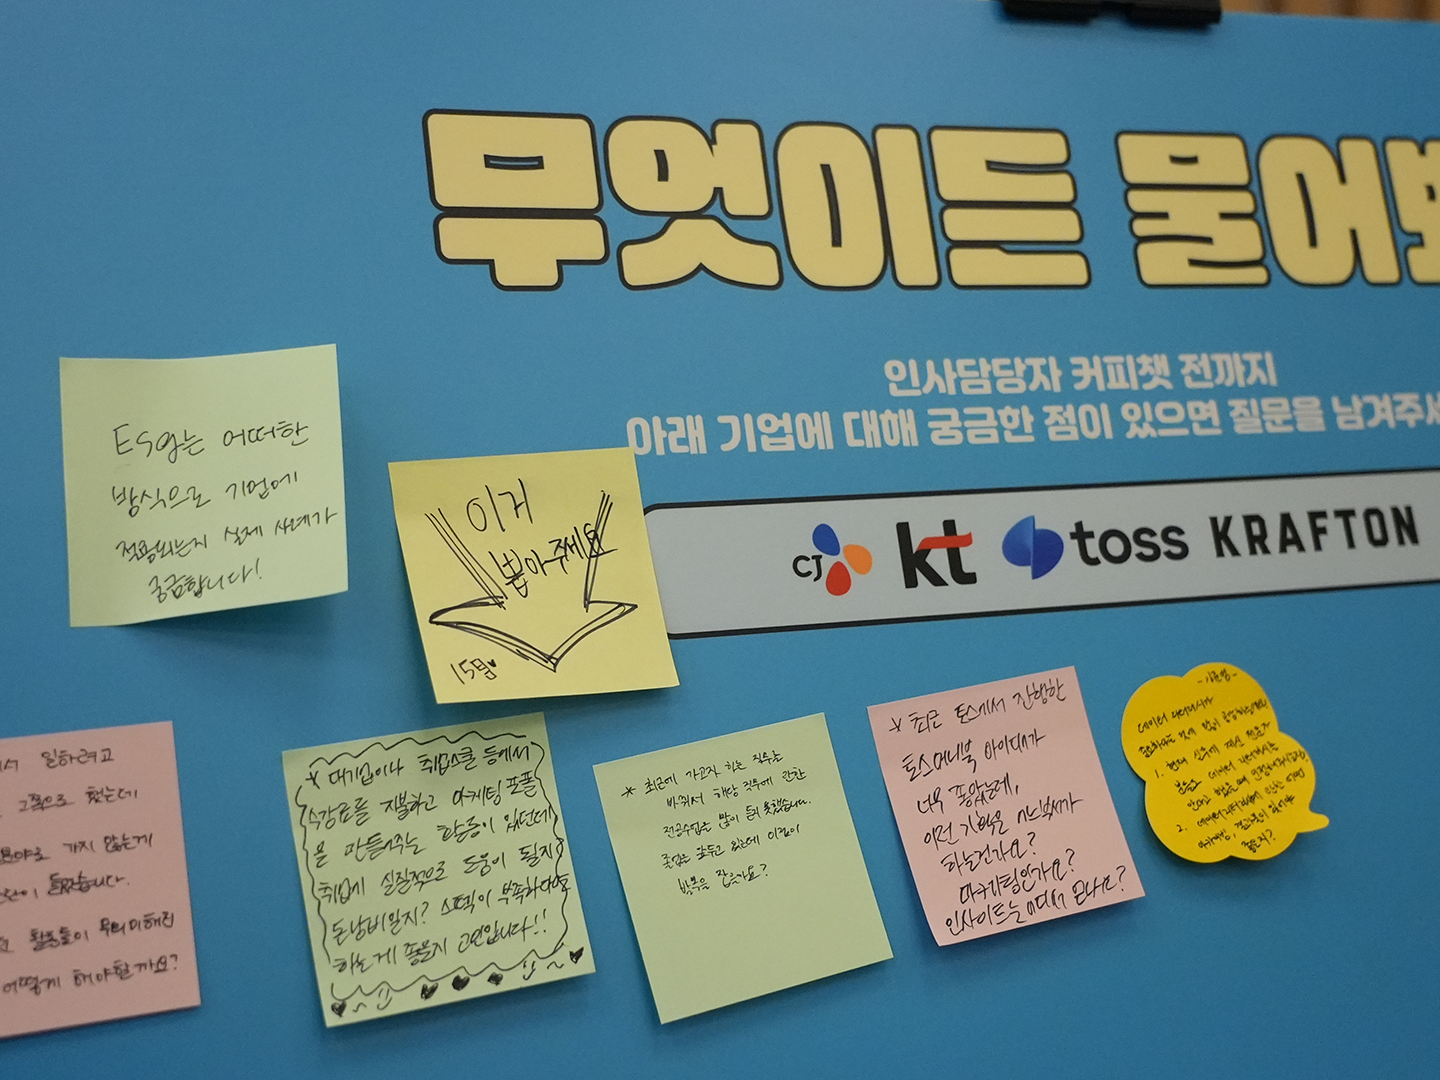 무엇이든 물어보
인사담당자 커피챗 전까지
아래 기업에 대해 궁금한 점이 있으면 질문을 남겨주세
CJ kt toss KRAFTON
ESG는 어떠한
방식으로 기업에
적용되는지 실제 사례가
궁금합니다!
이거
뽑아주세요
15명
서 일하려고
그쪽으로 했는데
분야로 가지 않는게
판단이 들었습니다.
활동들이 무의미해진
어떻게 해야할까요?
* 대기업이나 취업스쿨 등에서
수강료를 지불하고 마케팅 포폴
을 만들어주는 활동이 있던데
취업에 실질적으로 도움이 될지
돈낭비일지? 스펙이 부족하다면
하는게 좋을지 고민입니다!!
* 최근에 가고자 하는 직무는
바뀌서 해당 직무에 관한
전공수업을 많이 듣지 못했습니다.
졸업을 앞두고 있는데 이점이
발목을 잡을까요?
* 최근 토스에서 진행한
토스머니북 아이디어가
너무 좋았는데,
이런 기획은 어느부서가
하는건가요?
마케팅인가요?
인사이트는 어디서 얻나요?
데이터 리터러시가
1. 현재 인사팀
2. 데이터리터러시에 관한
좋은지?